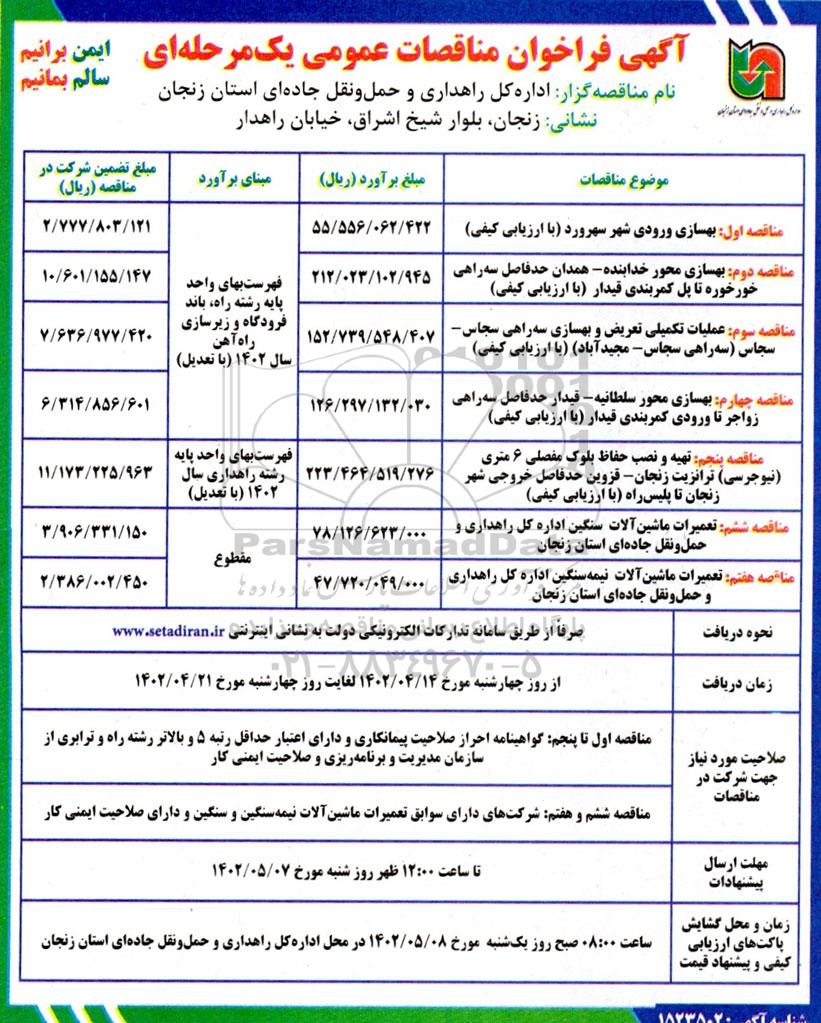 آگهی فراخوان مناقصات عمومی یک‌مرحله‌ای
ایمن برانیم
سالم بمانیم
نام مناقصه‌گزار: اداره‌کل راهداری و حمل‌ونقل جاده‌ای استان زنجان
نشانی: زنجان، بلوار شیخ اشراق، خیابان راهدار
موضوع مناقصات
مبلغ برآورد (ریال)
مبنای برآورد
مبلغ تضمین شرکت در
مناقصه (ریال)
مناقصه اول: بهسازی ورودی شهر سهرورد (با ارزیابی کیفی)
۵۵/۵۵۶/۰۶۲/۴۲۲
۲/۷۷۷/۸۰۳/۱۲۱
مناقصه دوم: بهسازی محور خدابنده- همدان حدفاصل سه‌راهی
خورخوره تا پل کمربندی قیدار (با ارزیابی کیفی)
۲۱۲/۰۲۳/۱۰۲/۹۴۵
۱۰/۶۰۱/۱۵۵/۱۴۷
مناقصه سوم: عملیات تکمیلی تعریض و بهسازی سه‌راهی سجاس-
سجاس (سه‌راهی سجاس- مجیدآباد) (با ارزیابی کیفی)
۱۵۲/۷۳۹/۵۴۸/۴۰۷
۷/۶۳۶/۹۷۷/۴۲۰
مناقصه چهارم: بهسازی محور سلطانیه- قیدار حدفاصل سه‌راهی
زواجر تا ورودی کمربندی قیدار (با ارزیابی کیفی)
۱۲۶/۲۹۷/۱۳۲/۰۳۰
۶/۳۱۴/۸۵۶/۶۰۱
فهرست‌بهای واحد
پایه رشته راه، باند
فرودگاه و زیرسازی
راه‌آهن
سال ۱۴۰۲ (با تعدیل)
مناقصه پنجم: تهیه و نصب حفاظ بلوک مفصلی ۶ متری
(نیوجرسی) ترانزیت زنجان- قزوین حدفاصل خروجی شهر
زنجان تا پلیس‌راه (با ارزیابی کیفی)
۲۲۳/۴۶۴/۵۱۹/۲۷۶
فهرست‌بهای واحد پایه
رشته راهداری سال
۱۴۰۲ (با تعدیل)
۱۱/۱۷۳/۲۲۵/۹۶۳
مناقصه ششم: تعمیرات ماشین‌آلات سنگین اداره کل راهداری و
حمل‌ونقل جاده‌ای استان زنجان
۷۸/۱۲۶/۶۲۳/۰۰۰
۳/۹۰۶/۳۳۱/۱۵۰
مناقصه هفتم: تعمیرات ماشین‌آلات نیمه‌سنگین اداره کل راهداری
و حمل‌ونقل جاده‌ای استان زنجان
۴۷/۷۲۰/۰۴۹/۰۰۰
مقطوع
۲/۳۸۶/۰۰۲/۴۵۰
نحوه دریافت
صرفا از طریق سامانه تدارکات الکترونیکی دولت به نشانی اینترنتی www.setadiran.ir
زمان دریافت
از روز چهارشنبه مورخ ۱۴۰۲/۰۴/۱۴ لغایت روز چهارشنبه مورخ ۱۴۰۲/۰۴/۲۱
صلاحیت مورد نیاز
جهت شرکت در
مناقصات
مناقصه اول تا پنجم: گواهینامه احراز صلاحیت پیمانکاری و دارای اعتبار حداقل رتبه ۵ و بالاتر رشته راه و ترابری از
سازمان مدیریت و برنامه‌ریزی و صلاحیت ایمنی کار
مناقصه ششم و هفتم: شرکت‌های دارای سوابق تعمیرات ماشین‌آلات نیمه‌سنگین و سنگین و دارای صلاحیت ایمنی کار
مهلت ارسال
پیشنهادات
تا ساعت ۱۲:۰۰ ظهر روز شنبه مورخ ۱۴۰۲/۰۵/۰۷
زمان و محل گشایش
پاکت‌های ارزیابی
کیفی و پیشنهاد قیمت
ساعت ۰۸:۰۰ صبح روز یک‌شنبه مورخ ۱۴۰۲/۰۵/۰۸ در محل اداره‌کل راهداری و حمل‌ونقل جاده‌ای استان زنجان
شناسه آگهی ۱۵۲۳۵۰۲۰
ParsNamadData
پایگاه اطلاع رسانی مناقصه و مزایده
۰۲۱-۸۸۳۴۹۶۷۰-۵